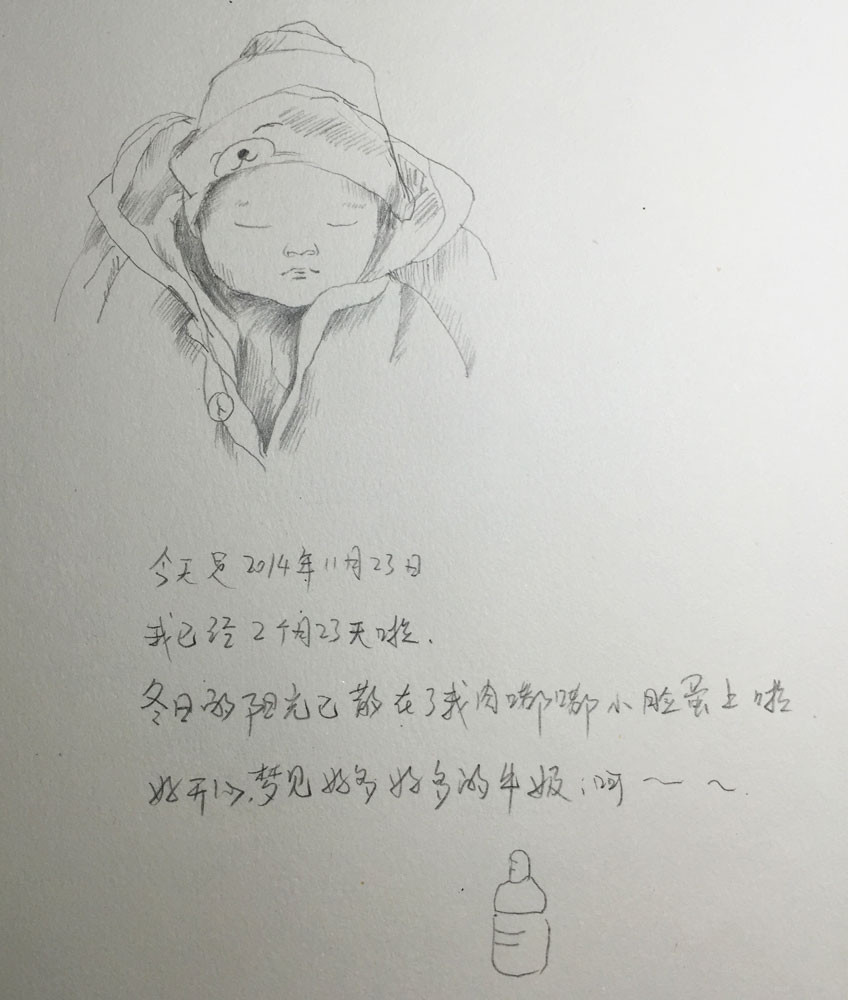 今天是2014年11月23日
我已经2个月23天啦.
冬日的阳光已散在了我肉嘟嘟小脸蛋上啦
好开心,梦见好多好多的牛奶;呵～～.